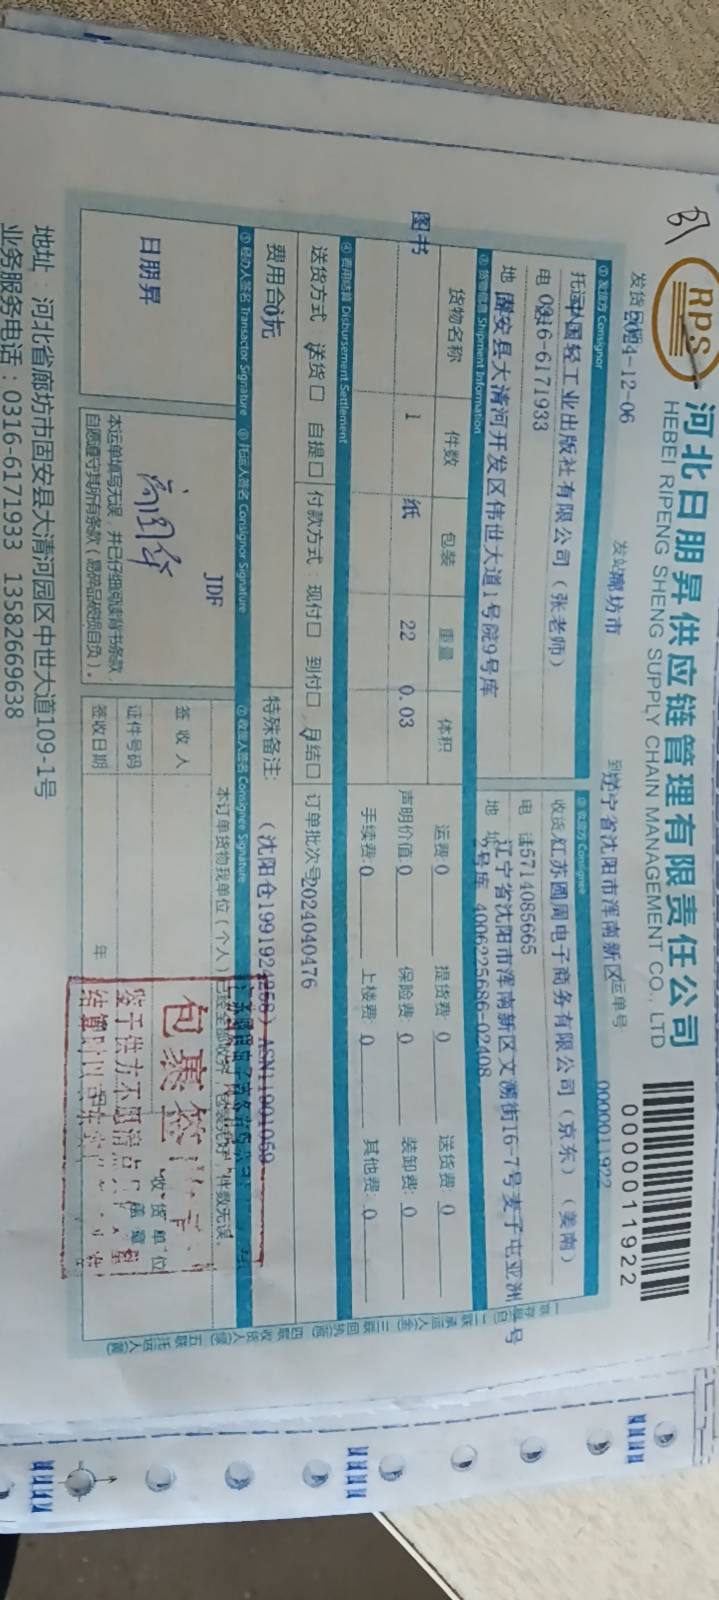 RPS
河北日朋昇供应链管理有限责任公司
HEBEI RIPENG SHENG SUPPLY CHAIN MANAGEMENT CO., LTD
0000011922
2024-12-06
发站 廊坊市
到 辽宁省沈阳市浑南新区
运单号 0000011922
① 发货方 Consignor
中国轻工业出版社有限公司（张老师）
电 0316-6171933
地 固安县大清河开发区伟世大道1号院9号库
② 收货方 Consignee
收货 江苏圆周电子商务有限公司（京东）（姜南）
电 话 15714085665
地 址 辽宁省沈阳市浑南新区文溯街16-7号麦子屯亚洲1号
号库 4006225686-02408
③ 货物信息 Shipment Information
货物名称 件数 包装 重量 体积
图书 1 纸 22 0.03
运费:0 提货费:0 送货费:0
声明价值:0 保险费:0 装卸费:0
手续费:0 上楼费:0 其他费:0
④ 费用结算 Disbursement Settlement
送货方式：送货□ 自提□ 付款方式：现付□ 到付□ 月结□ 订单批次号 2024040476
费用合 0元
特殊备注:
⑤ 经办人签名 Transactor Signature ⑥ 托运人签名 Consignor Signature
⑦ 收货人签名 Consignee Signature
日朋昇
JDF
本运单填写无误，并已仔细阅读背书条款，
自愿遵守其所有条款（易碎品破损自负）。
签 收 人
证件号码
签收日期 年
收货单位
盖章
包裹签
地址：河北省廊坊市固安县大清河园区中世大道109-1号
业务服务电话：0316-6171933 13582669638